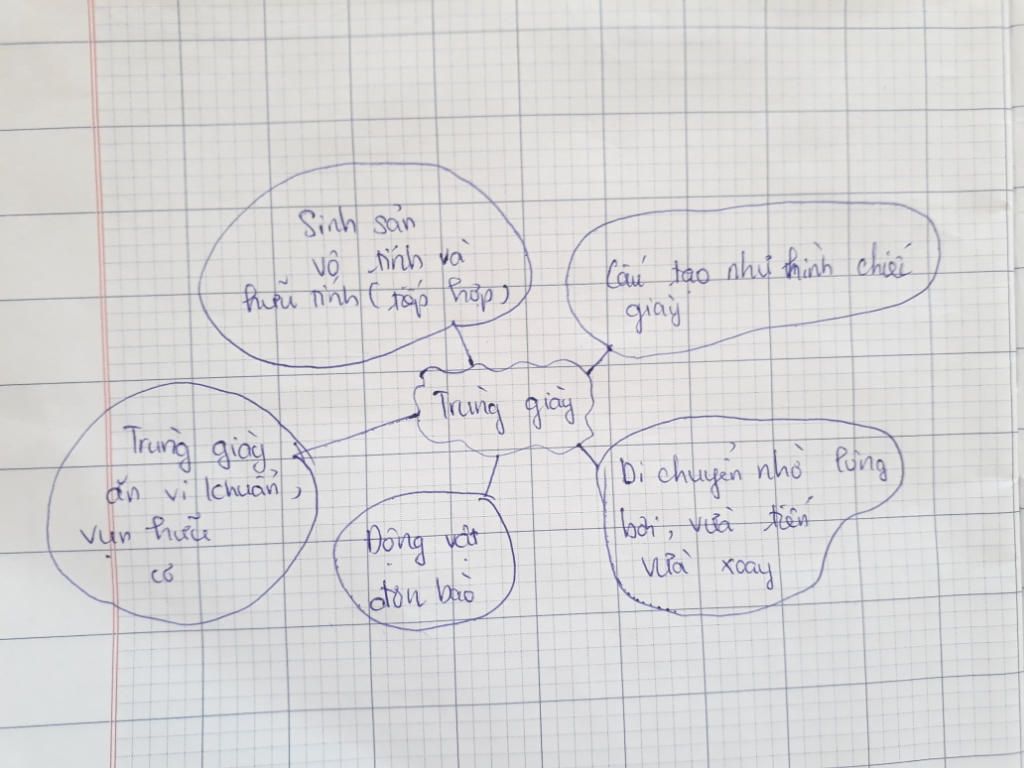 Sinh sản
vô tính và
hữu tính (tiếp hợp)
Cấu tạo như hình chiếc
giày
Trùng giày
Trùng giày
ăn vi khuẩn,
vụn hữu
cơ
Động vật
đơn bào
Di chuyển nhờ lông
bơi, vừa tiến
vừa xoay